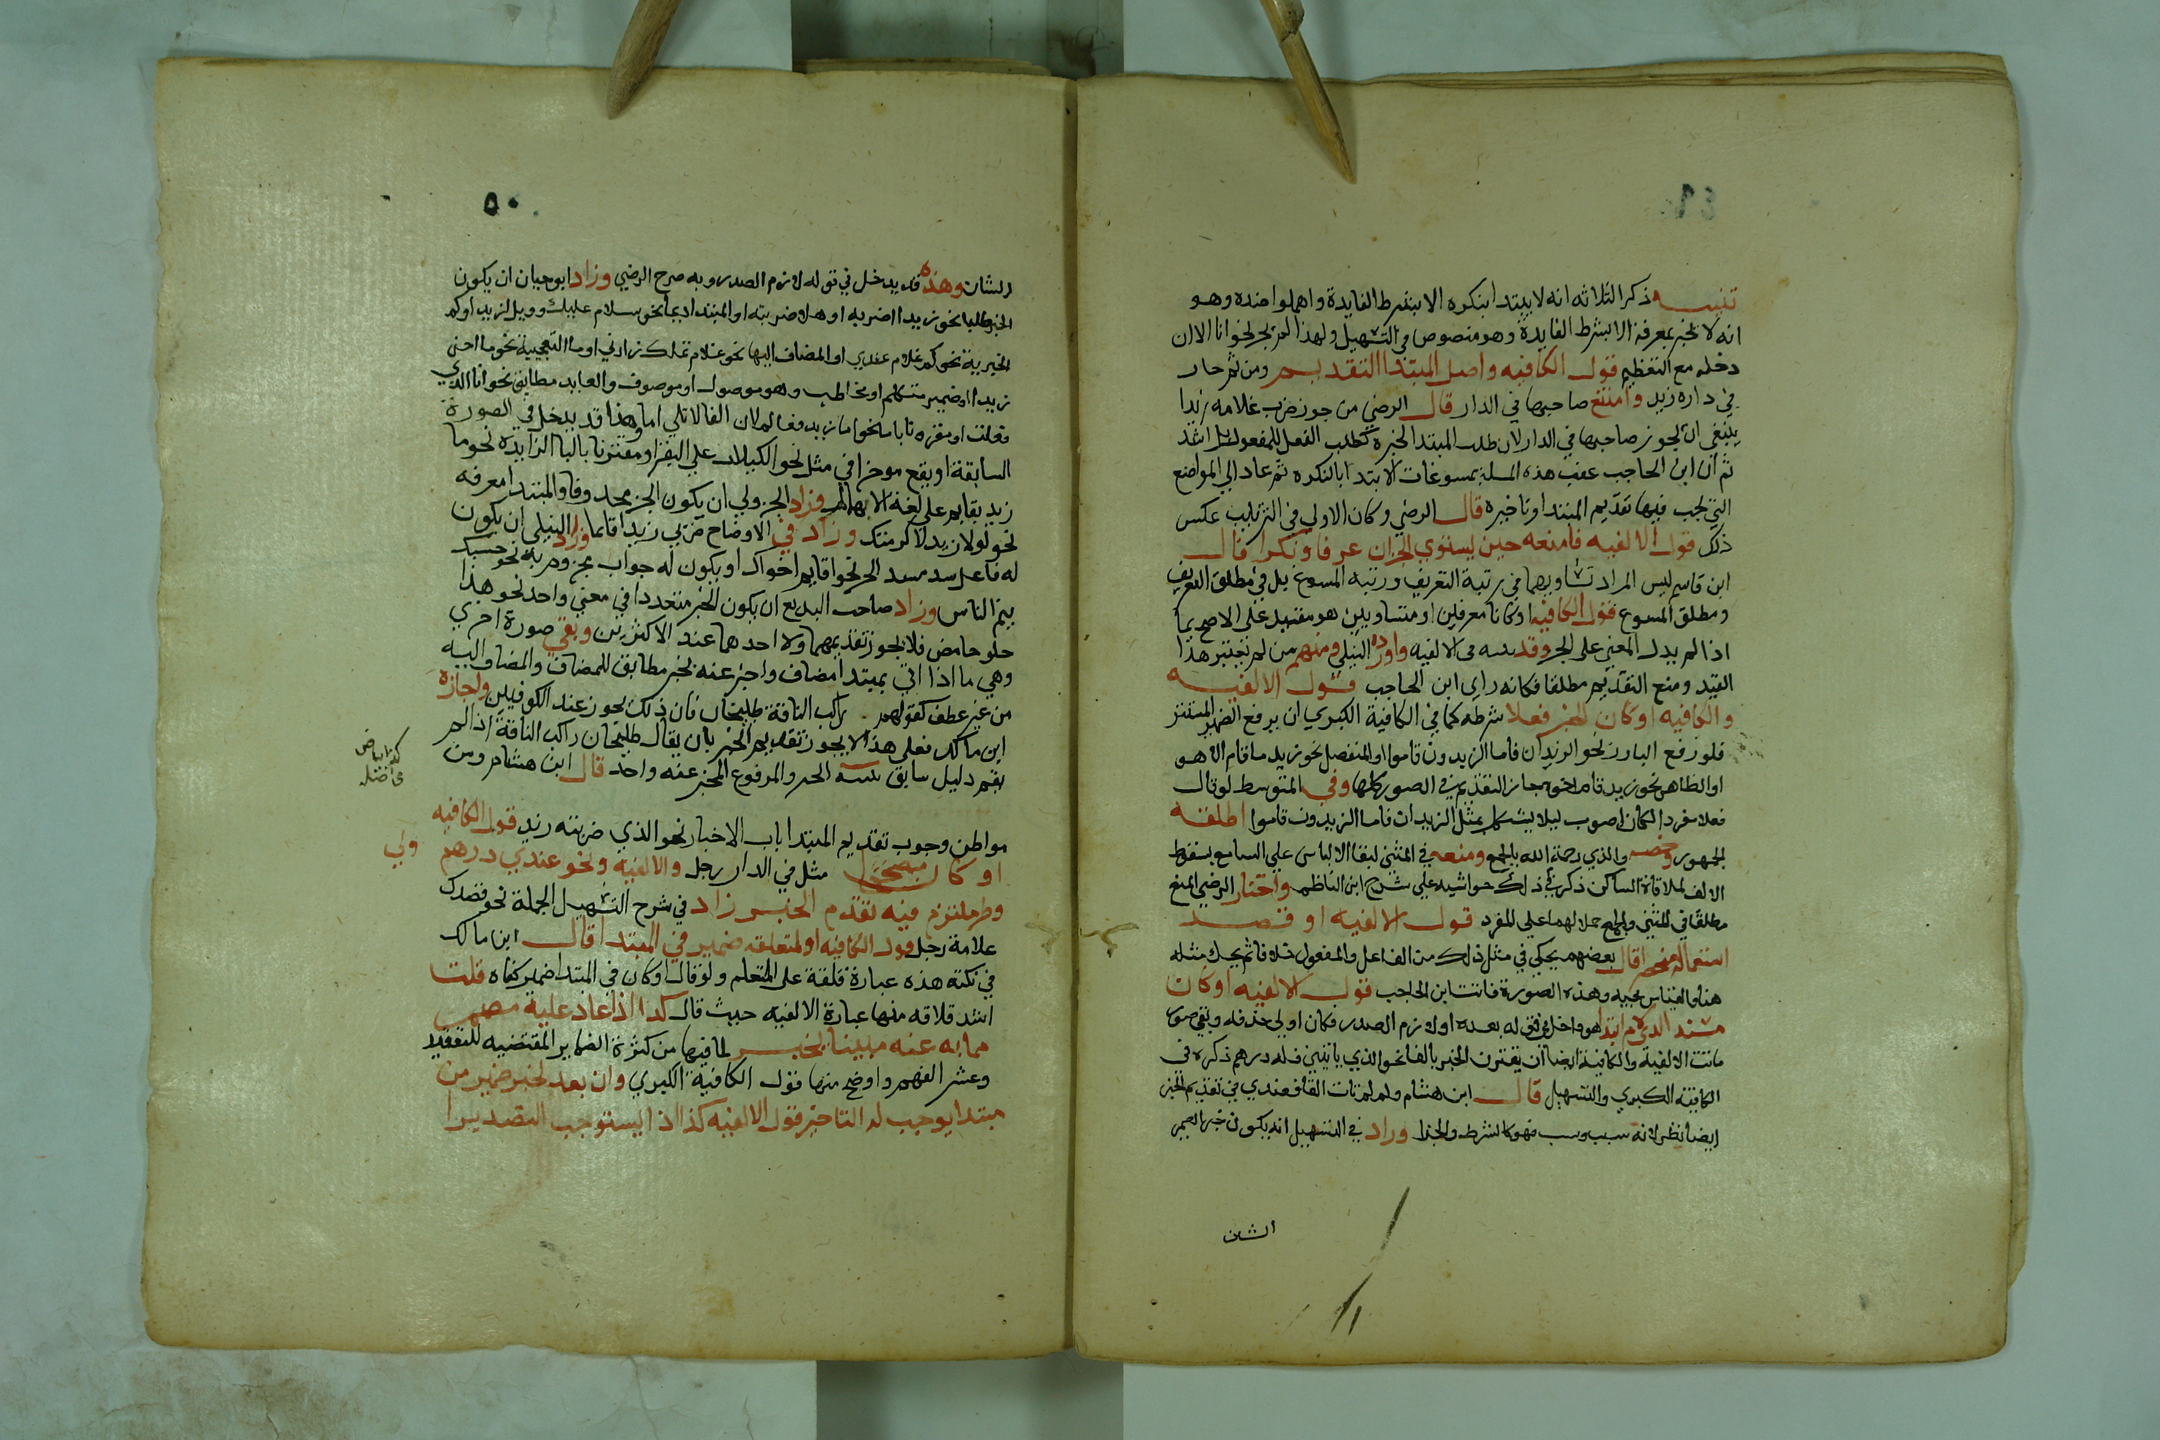 ٤٩
تنبيه ذكر الثلاثه انه لا يبتدا بنكره الا بشرط الفايدة واهملوا ضده وهو
انه لا يخبر بمعرفة الا بشرط الفايدة وهو منصوص في التسهيل ولهذا لم يجز نحو انا الا ان
دخله مع التعظيم قول الكافيه واصل المبتدا التقديم ومن ثم جاز
في داره زيد وامتنع صاحبها في الدار قال الرضي من جوز ضرب غلامه زيدا
ينبغي ان يجوز صاحبها في الدار لان طلب المبتدا لخبره كطلب الفعل للمفعول بل اشد
ثم ان ابن الحاجب عقب هذه المسلة بمسوغات الابتدا بالنكره ثم عاد الي المواضع
التي يجب فيها تقديم المبتدا وتاخيره قال الرضي وكان الاولي في الترتيب عكس
ذلك قول الالفيه فامنعه حين يستوي الجزان عرفا ونكرا قال
ابن قاسم ليس المراد تساويهما في رتبة التعريف ورتبه المسوغ بل في مطلق التعريف
ومطلق المسوغ قول الكافيه او كانا معرفتين او متساويين هو مقيد على الاصح بما
اذا لم يدل المعني على الخبر وقد في الالفيه واورده النيلي ومنهم من لم يعتبر هذا
القيد ومنع التقديم مطلقا فكانه راي ابن الحاجب قول الالفيه
والكافيه او كان الخبر فعلا شرطه كما في الكافية الكبري ان يرفع الضمير المستتر
فلو رفع البارز نحو الزيدان قاما الزيدون قاموا او المنفصل نحو زيد ما قام الا هو
او الظاهر نحو زيد قام اخوه جاز التقديم في الصور كلها وفي المتوسط لو قال
فعلا مفردا لكان اصوب ليلا يشكل بمثل الزيدان قاما الزيدون قاموا اطلقه
الجمهور وخصه والدي رحمة الله بالجمع ومنعه في المثني لبقا الالباس علي السامع بسقوط
الالف لملاقاة الساكن ذكره في ذلك حواشيه علي شرح ابن الناظم واختار الرضي المنع
مطلقا في المثني والجمع حملا لهما علي المفرد قول الالفيه او قصد
استعماله منحصرا قال بعضهم يحكي في مثل ذلك من الفاعل والمفعول خلافا ثم يحك مثله
هنا والقياس مجيه وهذه الصورة فاتت ابن الحاجب قول الالفيه او كان
مسندا لذي لام ابتدا هو داخل في قوله بعده او لازم الصدر فكان اولي حذفه وبقي صور
فاتت الالفية والكافية ايضا ان يقترن الخبر بالفا نحو الذي ياتيني فله درهم ذكره في
الكافيه الكبري والتسهيل قال ابن هشام ولم لم تات الفا فعندي في تقديم الخبر
ايضا نظر لانه سبب ومسبب فهو كالشرط والجزا وزاد في التسهيل انه يكون خبر ضمير
الشان
٥٠
الشان وهذه قد يدخل في قوله لازم الصدر وبه صرح الرضي وزاد ابو حيان ان يكون
الخبر طلبا نحو زيد اضربه او هلا ضربته او المبتدا دعا نحو سلام عليك وويل لزيد او كم
الخبرية نحو كم غلام عندي او المضاف اليها نحو غلام تملك زارني او ما التعجبية نحو ما احسن
زيدا او ضمير متكلم او مخاطب وهو موصول او موصوف والعايد مطابق نحو انا الذي
فعلت او مقرونا باما نحو اما زيد فعالم لان الفا لا تلي اما وهذا قد يدخل في الصورة
السابقة او يقع موخرا في مثل نحو الكلاب علي البقر او مقترنا بالبا الزايدة نحو ما
زيد بقايم علي لغة وزاد الجزولي ان يكون الخبر محذوفا والمبتدا معرفه
نحو لولا زيد لاكرمتك وزاد في الاوضاح ضربي زيدا قايما وزاد النيلي ان يكون
له فاعل سد مسد الخبر نحو اقايم اخواك او يكون له جواب مجزوم به نحو حسبك
ينم الناس وزاد صاحب البديع ان يكون الخبر متعددا في معني واحد نحو هذا
حلو حامض فلا يجوز تقديمهما ولا احدهما عند الاكثرين وبقي صورة اخري
وهي ما اذا اتي بمبتدا مضاف واخبر عنه بخبر مطابق للمضاف والمضاف اليه
من غير عطف كقولهم راكب الناقة طليحان فان ذلك يجوز عند الكوفيين واجازه
ابن مالك فعلي هذا لا يجوز تقديم الخبر بان يقال طليحان راكب الناقة اذ لم
يقم دليل سابق الخبر والمرفوع المخبر عنه واحد قال ابن هشام ومن
كذا بياض
في اصله
مواطن وجوب تقديم المبتدا باب الاخبار نحو الذي ضربته زيد قول الكافيه
او كان مصححا مثل في الدار رجل والالفيه ونحو عندي درهم ولي
وطر ملتزم فيه تقدم الخبر زاد في شرح التسهيل الجملة نحو قصدك
غلامه رجل قول الكافيه او لمتعلقه ضمير في المبتدا قال ابن مالك
في نكته هذه عبارة قلقة على المتعلم ولو قال او كان في المبتدا ضمير كفاه قلت
اشد قلاقه منها عبارة الالفيه حيث قال كذا اذا عاد عليه مضمر
مما به عنه مبينا يخبر لما فيها من كثرة الضماير المقتضيه للتعقيد
وعسر الفهم واوضح منها قول الكافية الكبري وان يعد لخبر ضمير من
مبتدا يوجب له التاخير قول الالفيه كذا اذا يستوجب التصديرا